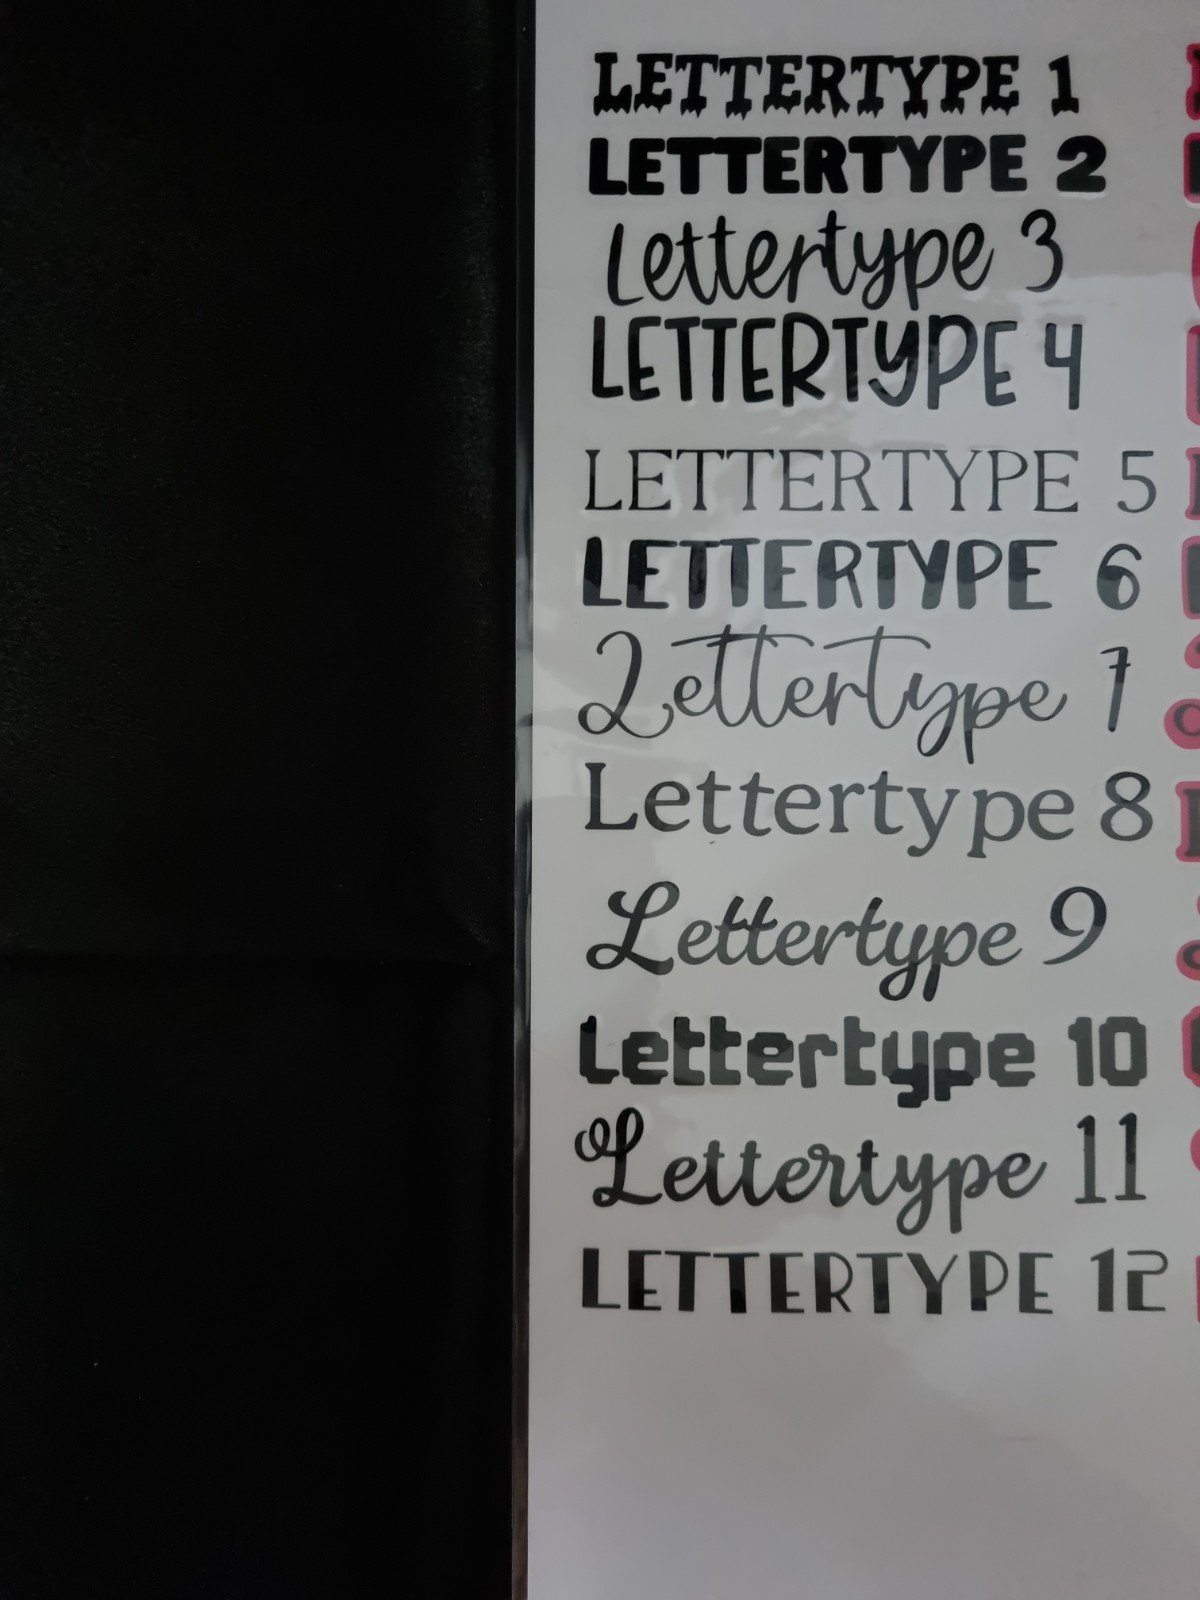 LETTERTYPE 1
LETTERTYPE 2
Lettertype 3
LETTERTYPE 4
LETTERTYPE 5
LETTERTYPE 6
Lettertype 7
Lettertype 8
Lettertype 9
Lettertype 10
Lettertype 11
LETTERTYPE 12